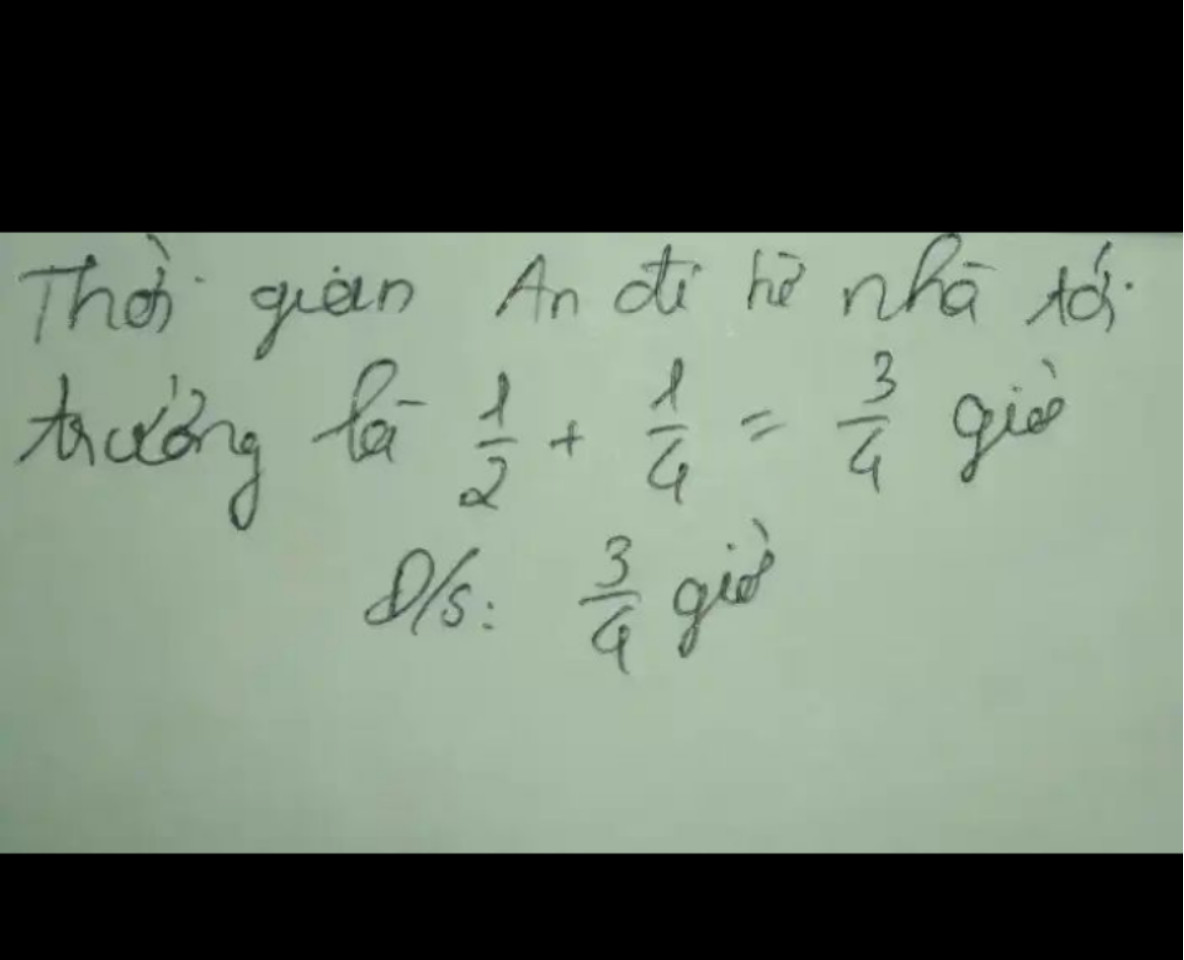 Thời gian An đi từ nhà tới
trường là 1/2 + 1/4 = 3/4 giờ
Đ/s: 3/4 giờ